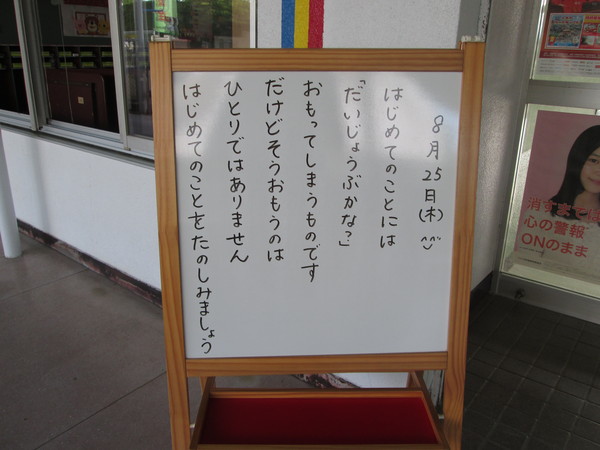 8月25日(木)^^
はじめてのことには
「だいじょうぶかな?」
おもってしまうものです
だけどそうおもうのは
ひとりではありません
はじめてのことをたのしみましょう
消すまでは
心の警報
ONのまま